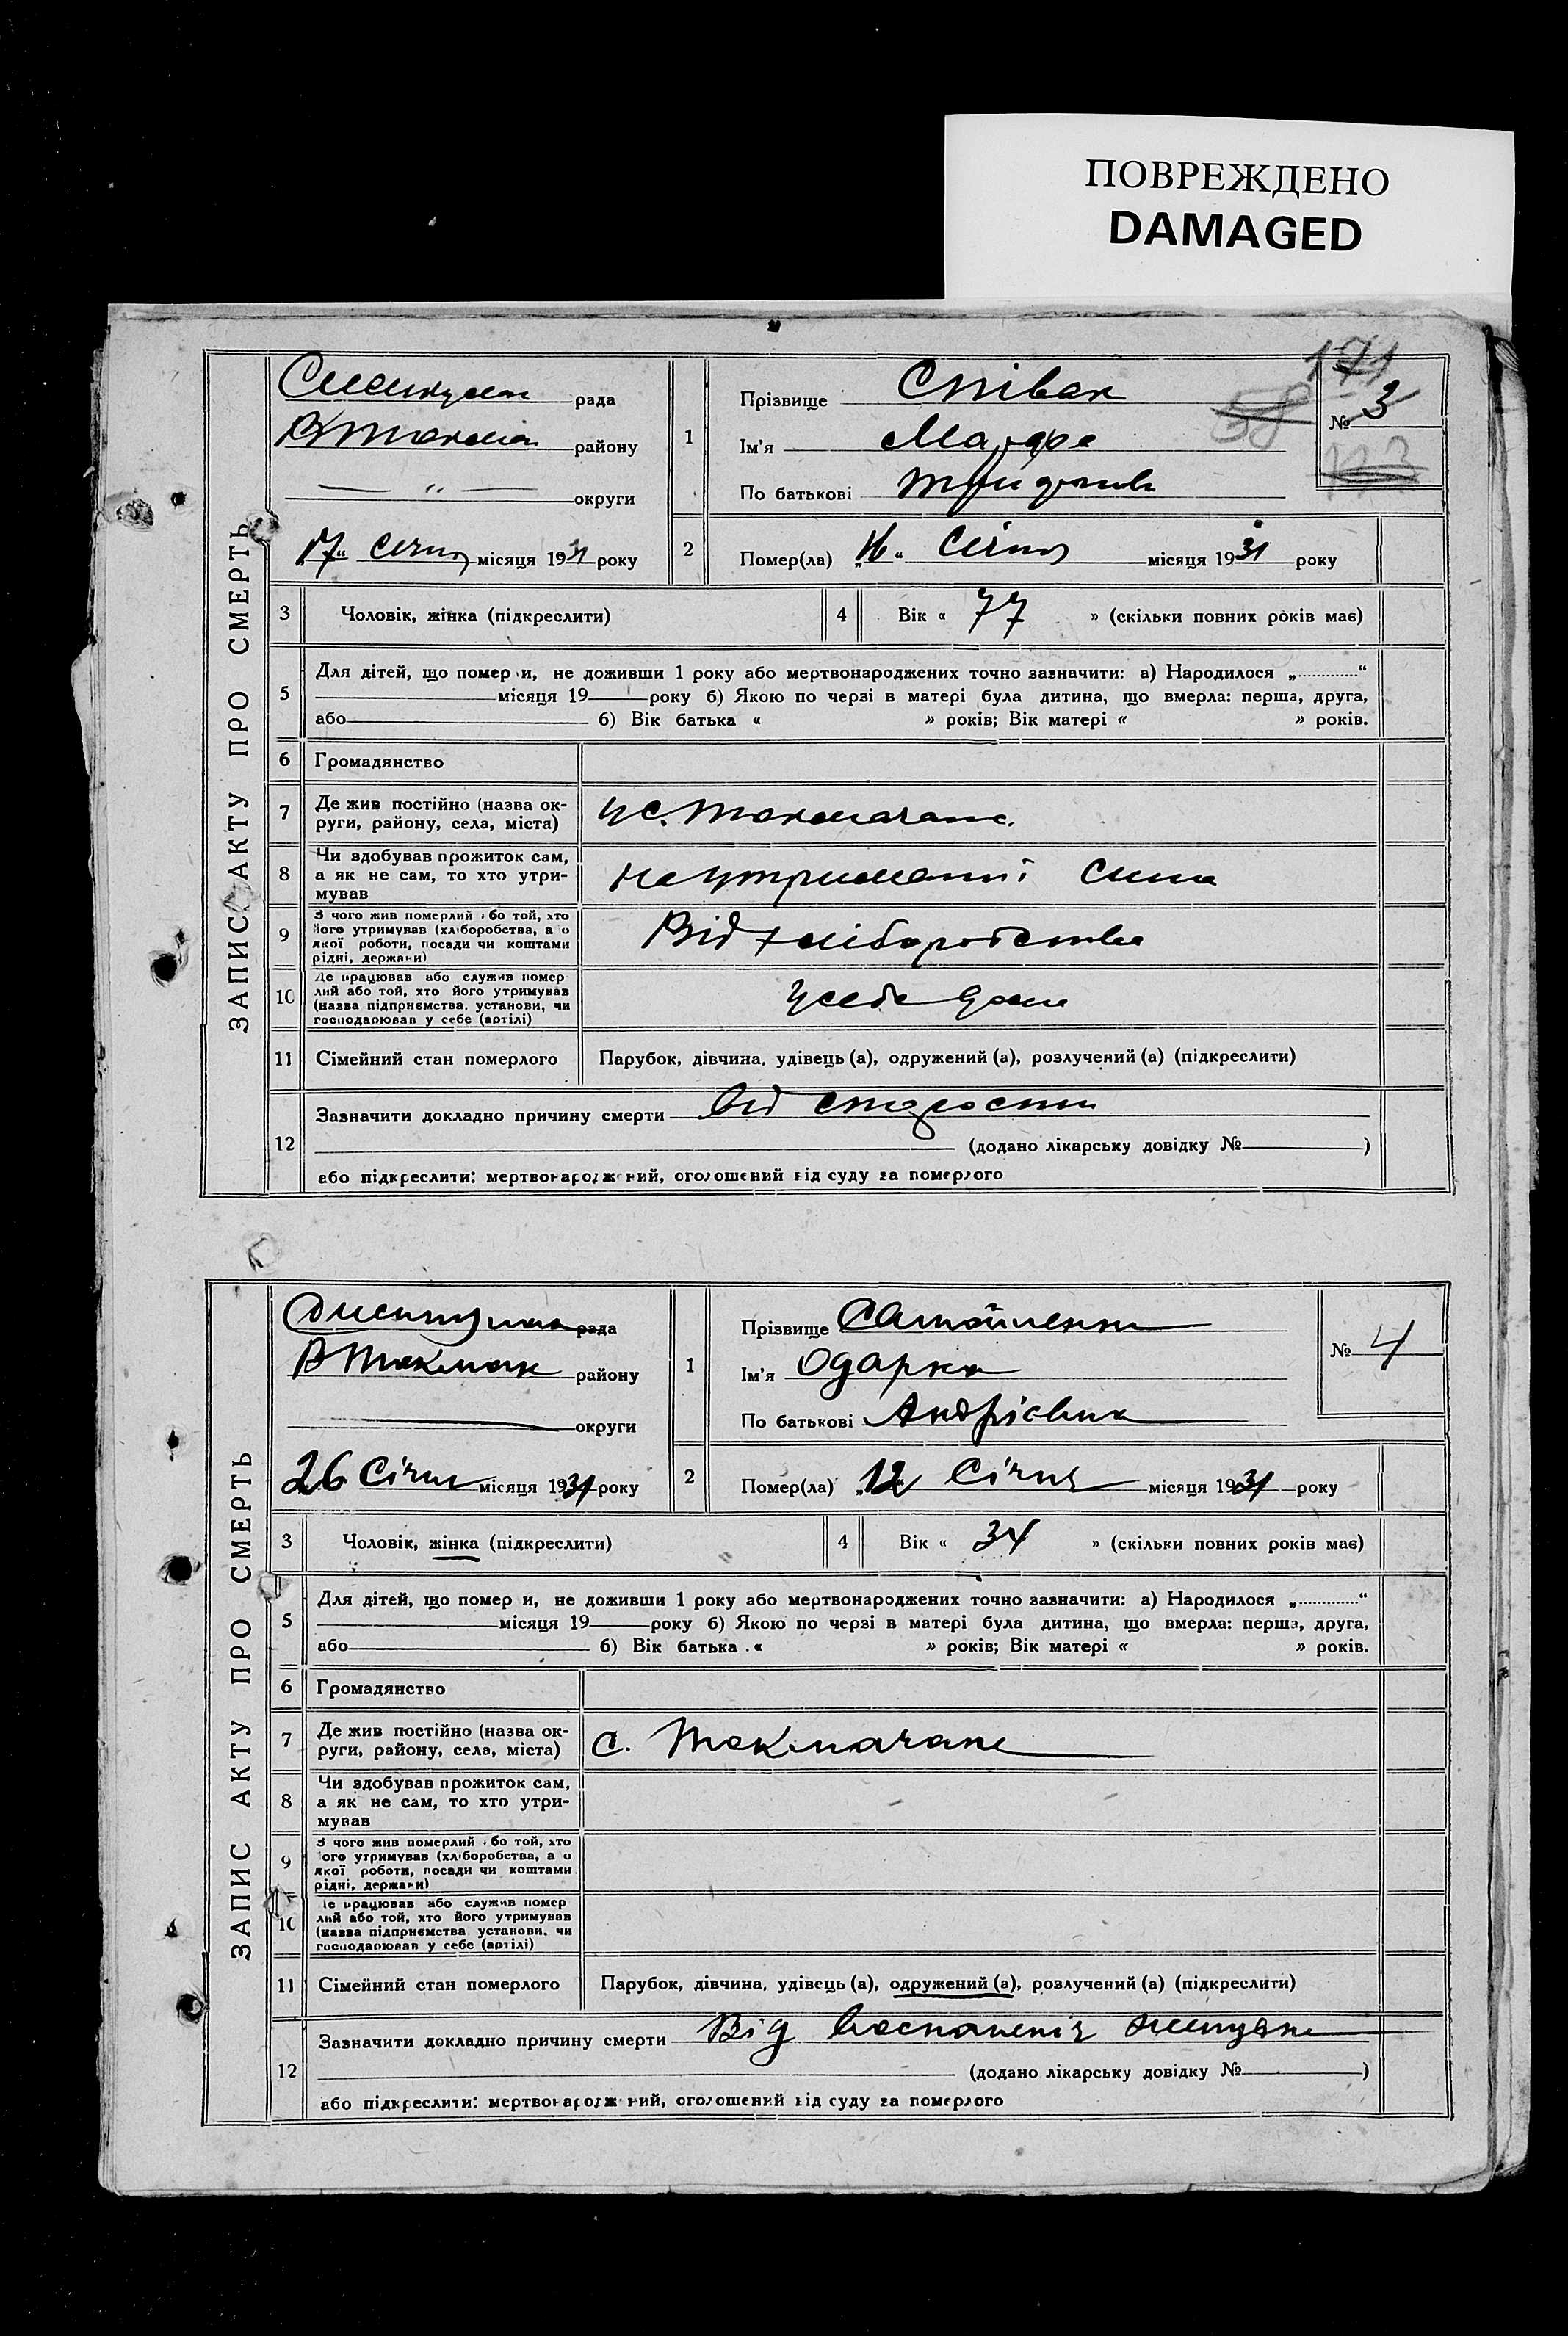 ПОВРЕЖДЕНО
DAMAGED
ЗАПИС АКТУ ПРО СМЕРТЬ
рада
району
— „ — округи
17 „ місяця 1931 року
171
58
№ 3
1
Прізвище Співак
Ім'я
По батькові
2
Помер(ла) місяця 1931 року
3 Чоловік, жінка (підкреслити)
4 Вік « 77 » (скільки повних років має)
5 Для дітей, що помер и, не доживши 1 року або мертвонароджених точно зазначити: а) Народилося „ “
місяця 19 року б) Якою по черзі в матері була дитина, що вмерла: перша, друга,
або б) Вік батька « » років; Вік матері « » років.
6 Громадянство
7 Де жив постійно (назва ок-
руги, району, села, міста)
8 Чи здобував прожиток сам,
а як не сам, то хто утри-
мував
на утриманні сина
9 З чого жив померлий або той, хто
його утримував (хліборобства, а о
якої роботи, посади чи коштами
рідні, держави)
Від хліборобства
10 Де працював або служив помер
лий або той, хто його утримував
(назва підприємства, установи, чи
господарював у себе (артілі)
у себе дома
11 Сімейний стан померлого Парубок, дівчина, удівець (а), одружений (а), розлучений (а) (підкреслити)
12 Зазначити докладно причину смерти від старости
(додано лікарську довідку № )
або підкреслити: мертвонароджений, оголошений від суду за померлого
ЗАПИС АКТУ ПРО СМЕРТЬ
рада
В Токмак району
округи
26 Січня місяця 1931 року
№ 4
1
Прізвище Самойленко
Ім'я Одарка
По батькові Андрієвна
2
Помер(ла) „12 Січня місяця 1931 року
3 Чоловік, жінка (підкреслити)
4 Вік « 34 » (скільки повних років має)
5 Для дітей, що помер и, не доживши 1 року або мертвонароджених точно зазначити: а) Народилося „ “
місяця 19 року б) Якою по черзі в матері була дитина, що вмерла: перша, друга,
або б) Вік батька « » років; Вік матері « » років.
6 Громадянство
7 Де жив постійно (назва ок-
руги, району, села, міста)
с. Токмачане
8 Чи здобував прожиток сам,
а як не сам, то хто утри-
мував
9 З чого жив померлий або той, хто
ого утримував (хліборобства, а о
якої роботи, посади чи коштами
рідні, держави)
10 Де працював або служив помер
лий або той, хто його утримував
(назва підприємства установи, чи
господарював у себе (артілі)
11 Сімейний стан померлого Парубок, дівчина, удівець (а), одружений (а), розлучений (а) (підкреслити)
12 Зазначити докладно причину смерти Від воспаленія
(додано лікарську довідку № )
або підкреслити: мертвонароджений, оголошений від суду за померлого